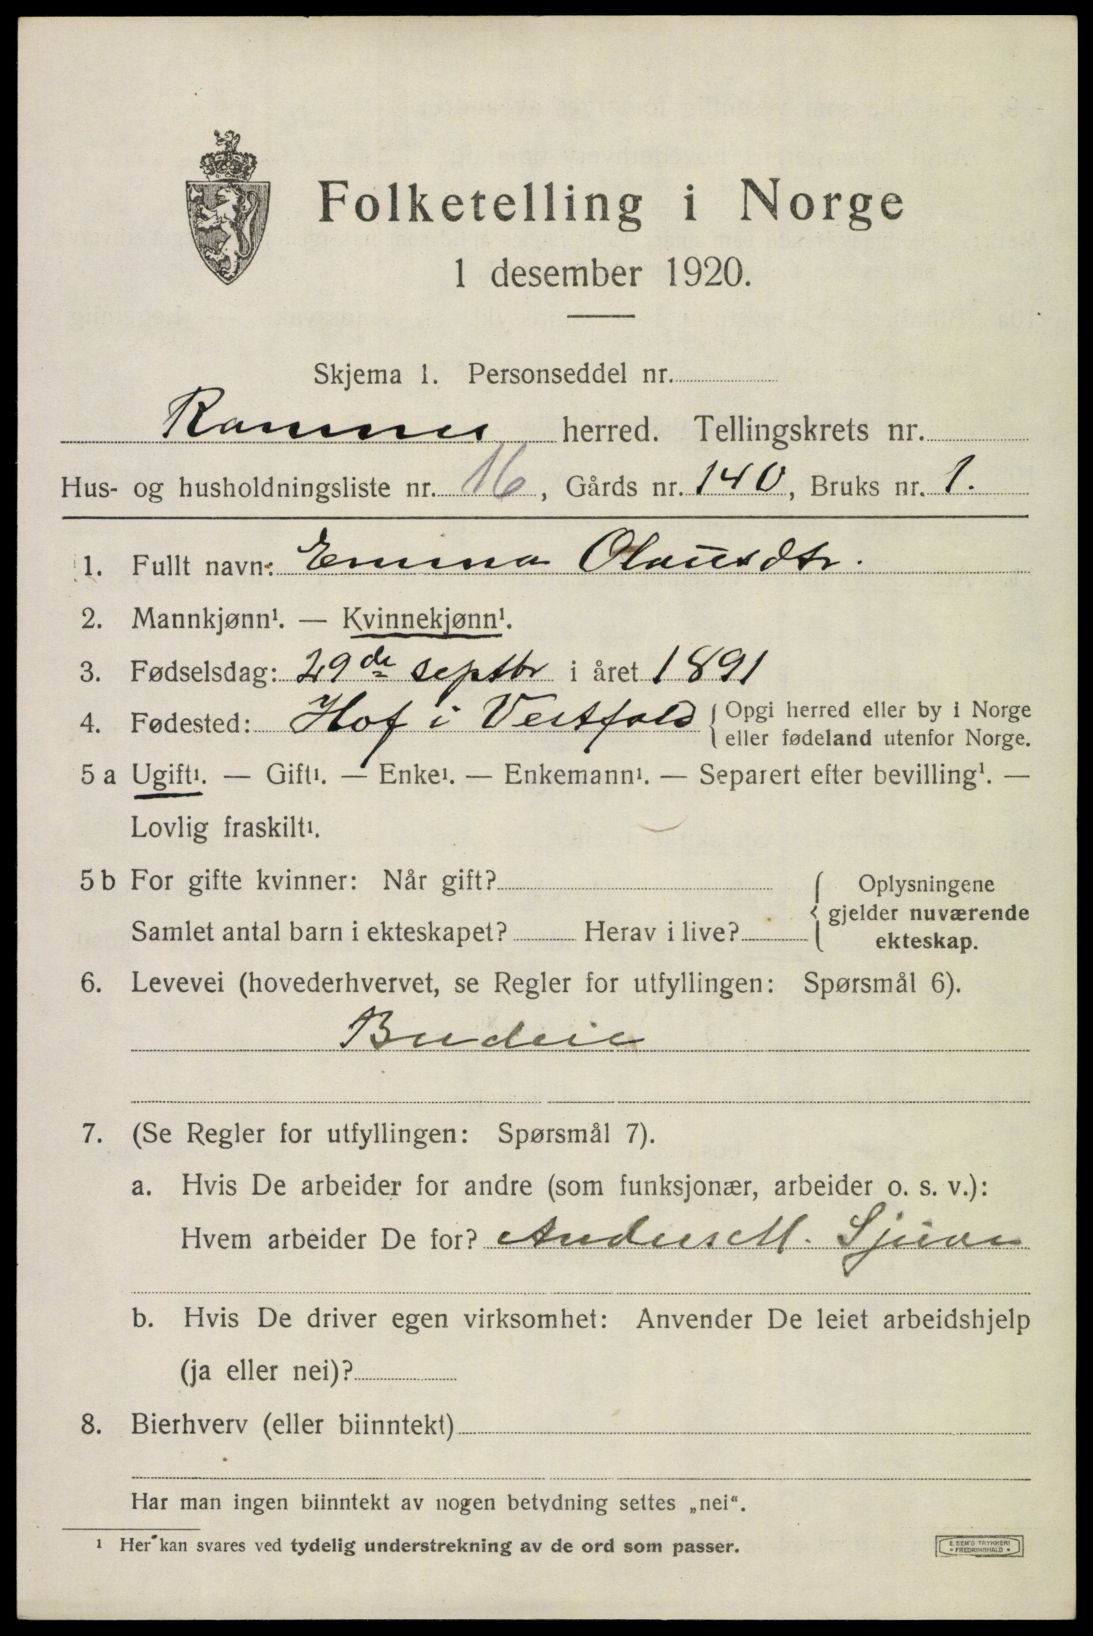 Folketelling i Norge
1 desember 1920.
Skjema 1. Personseddel nr.
Ramnes herred. Tellingskrets nr.
Hus- og husholdningsliste nr. 16, Gårds nr. 140, Bruks nr. 1.
1. Fullt navn: Emma Olausdtr.
2. Mannkjønn¹. — Kvinnekjønn¹.
3. Fødselsdag: 29de septbr i året 1891
4. Fødested: Hof i Vestfold { Opgi herred eller by i Norge
eller fødeland utenfor Norge.
5 a Ugift¹. — Gift¹. — Enke¹. — Enkemann¹. — Separert efter bevilling¹. —
Lovlig fraskilt¹.
5 b For gifte kvinner: Når gift?
Samlet antal barn i ekteskapet? Herav i live?
{ Oplysningene
gjelder nuværende
ekteskap.
6. Levevei (hovederhvervet, se Regler for utfyllingen: Spørsmål 6).
Budeie
7. (Se Regler for utfyllingen: Spørsmål 7).
a. Hvis De arbeider for andre (som funksjonær, arbeider o. s. v.):
Hvem arbeider De for? Anders M.
b. Hvis De driver egen virksomhet: Anvender De leiet arbeidshjelp
(ja eller nei)?
8. Bierhverv (eller biinntekt)
Har man ingen biinntekt av nogen betydning settes „nei“.
¹ Her kan svares ved tydelig understrekning av de ord som passer.
E. SEM'S TRYKKERI
FREDRIKSHALD